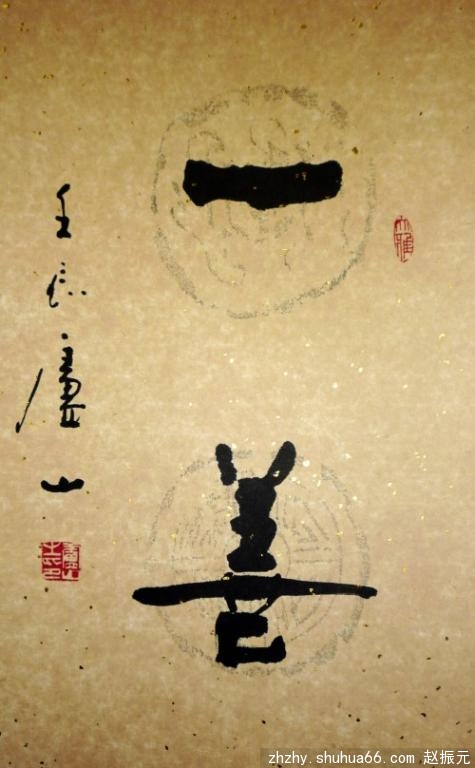 一善
壬辰廬山
zhzhy.shuhua66.com 赵振元